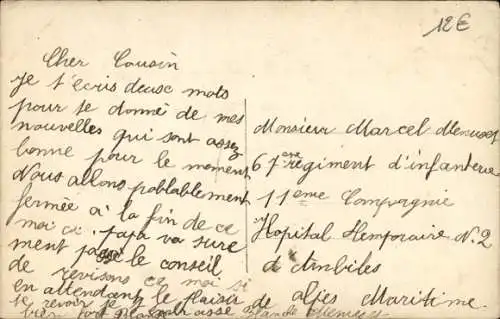 12€
Cher Cousin
Je t'ecris deuse mots
pour te donné de mes
nouvelles qui sont assez
bonne pour le moment
Nous allons poblablement
fermée à la fin de ce
moi ci. papa va sure
ment passé le conseil
de revisons ce moi si
en attendant le plaisir de
te revoir
bien fort
Monsieur Marcel
67eme régiment d'infanterie
11eme Compagnie
Hopital Temporaire N. 2
d'Antibes
alpes Maritime